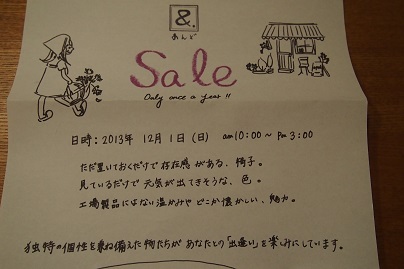 &.
あんど
Sale
Only once a year!!
日時：2013年 12月1日（日） am10:00～Pm3:00
ただ置いておくだけで存在感がある、椅子。
見ているだけで元気が出てきそうな、色。
工場製品にはない温かみやどこか懐かしい、魅力。
独特の個性を兼ね備えた物たちがあなたとの「出逢い」を楽しみにしています。